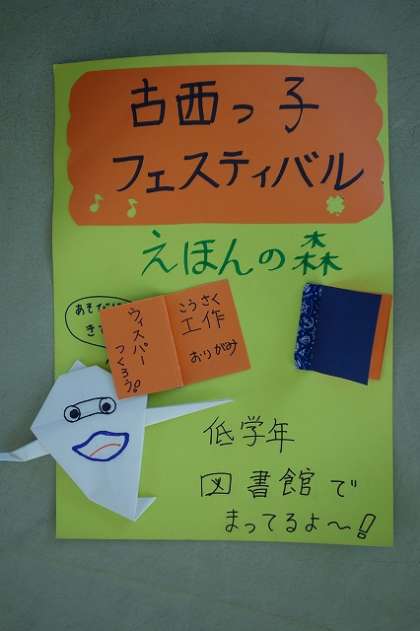 古西っ子
フェスティバル
えほんの森
あそびに
きて
こうさく
工作
おりがみ
ウィスパー
つくろう!
低学年
図書館で
まってるよ〜!